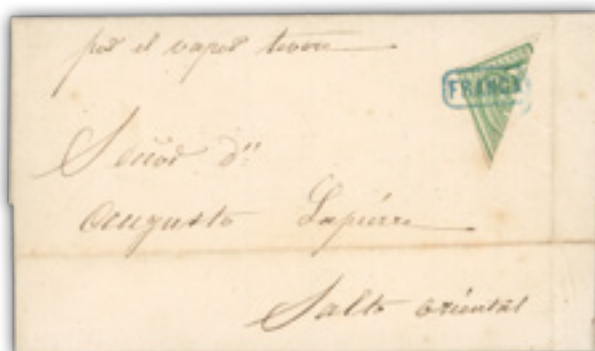 por el vapor tevere
FRANCA
Señor dⁿ
Augusto Lapierre
Salto oriental